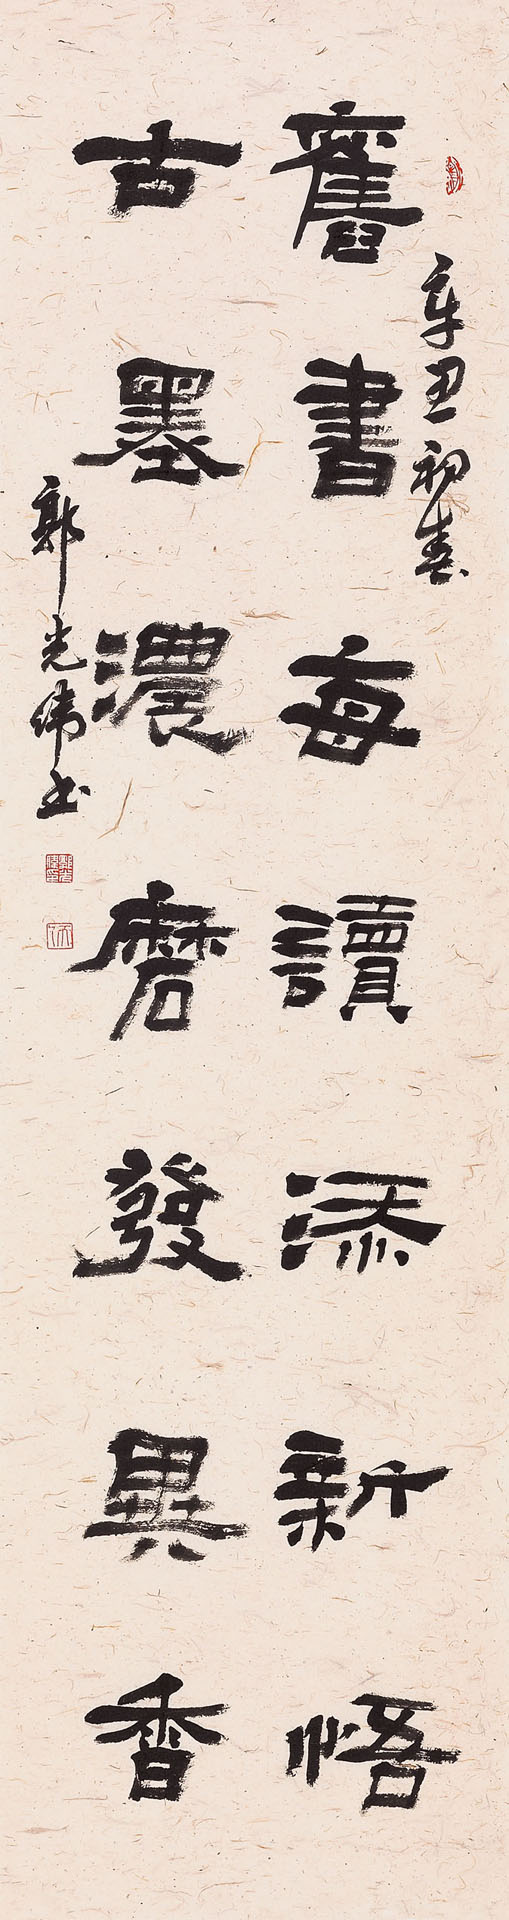 辛丑初春
舊書每讀添新悟
古墨濃磨發異香
郭光偉书